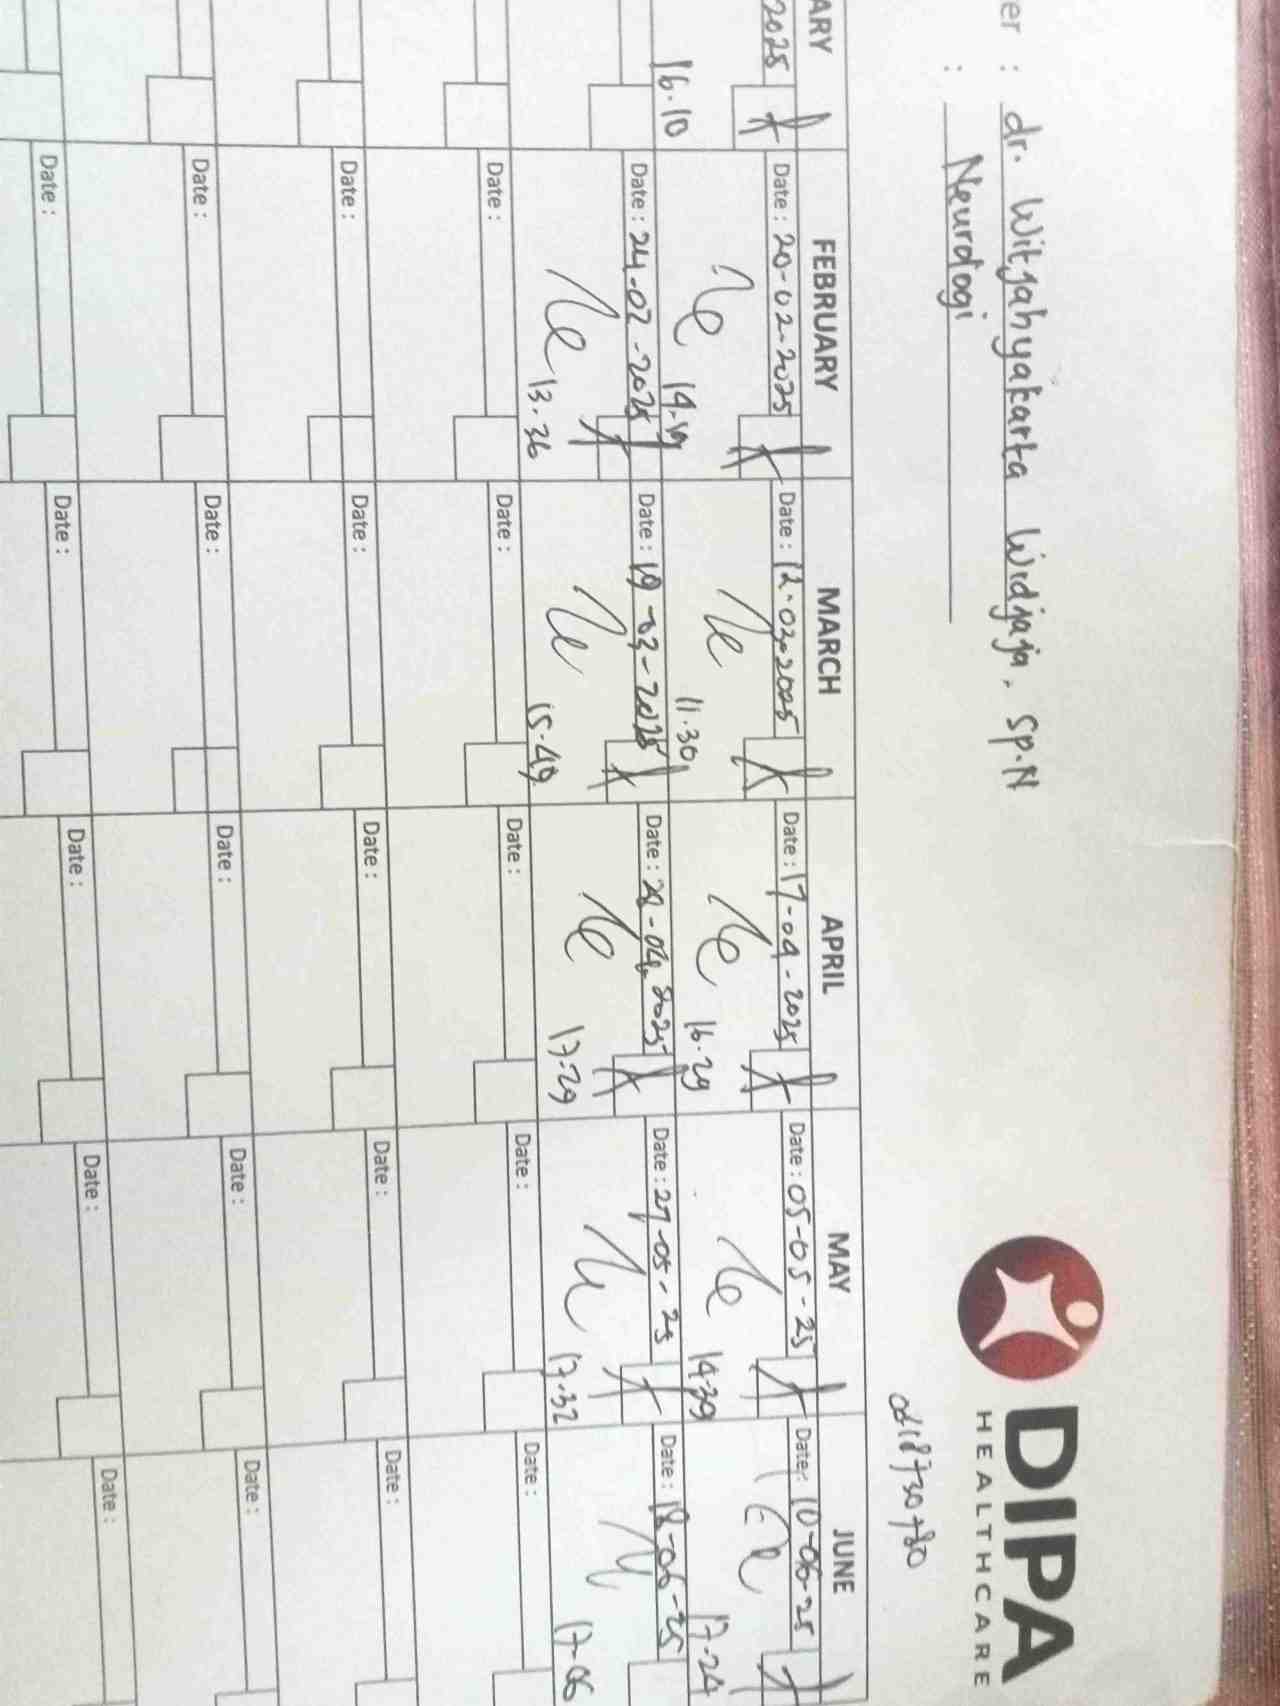 DIPA
HEALTHCARE
er : dr. Witjahyakarta Widjaja. Sp.N
: Neurologi
ARY FEBRUARY MARCH APRIL MAY JUNE
2025 Date : 20-02-2025 Date : 12-03-2025 Date : 17-04-2025 Date : 05-05-25 Date : 10-06-25
16.10 11.30 16.29 14.39 17.24
Date : 24-02-2025 Date : 19-03-2025 Date : 28-04-2025 Date : 27-05-25 Date : 18-06-25
13.36 15.49 17.29 17.32 17.06
Date : Date : Date : Date : Date :
Date : Date : Date : Date : Date :
Date : Date : Date : Date : Date :
Date : Date : Date : Date : Date :